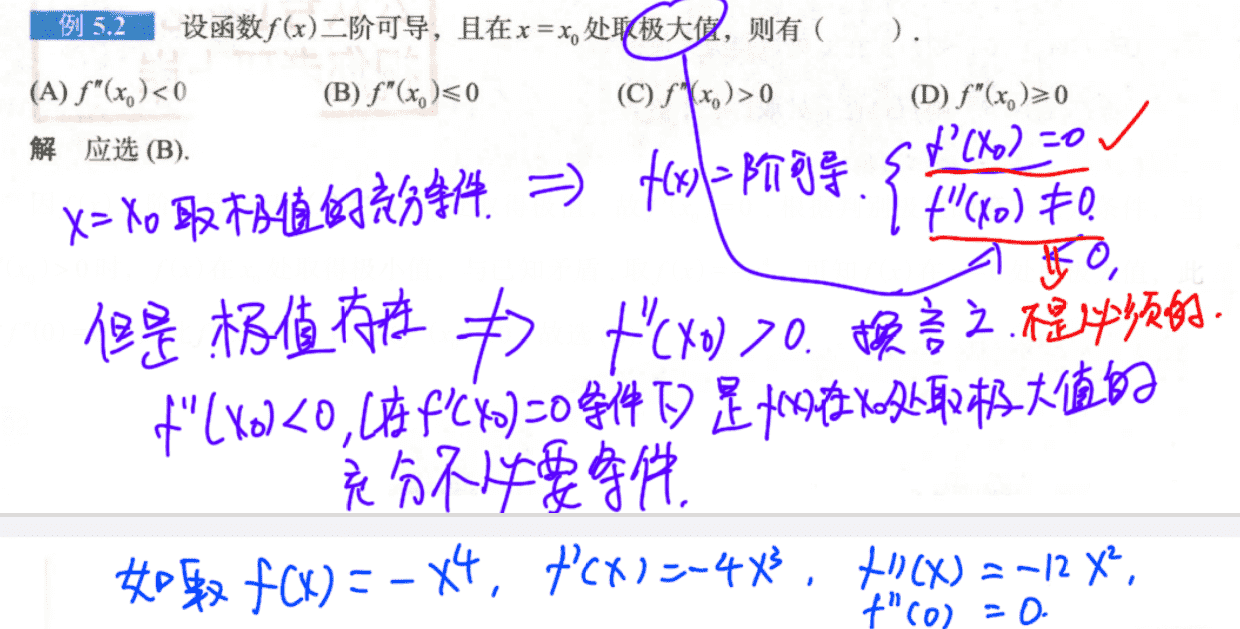 例 5.2 设函数f(x)二阶可导，且在x=x₀处取极大值，则有（ ）.
(A) f″(x₀)<0 (B) f″(x₀)≤0 (C) f″(x₀)>0 (D) f″(x₀)≥0
解 应选(B).
f'(x₀)=0 ✓
x=x₀取极值的充分条件. ⇒ f(x)二阶可导. {
f''(x₀)≠0.
<0,
但是.极值存在 ⇏ f''(x₀)>0. 换言之. 不是必须的.
f''(x₀)<0,(在f'(x₀)=0条件下)是f(x)在x₀处取极大值的
充分不必要条件.
如取 f(x)=-x⁴, f'(x)=-4x³, f''(x)=-12x²,
f''(0)=0.